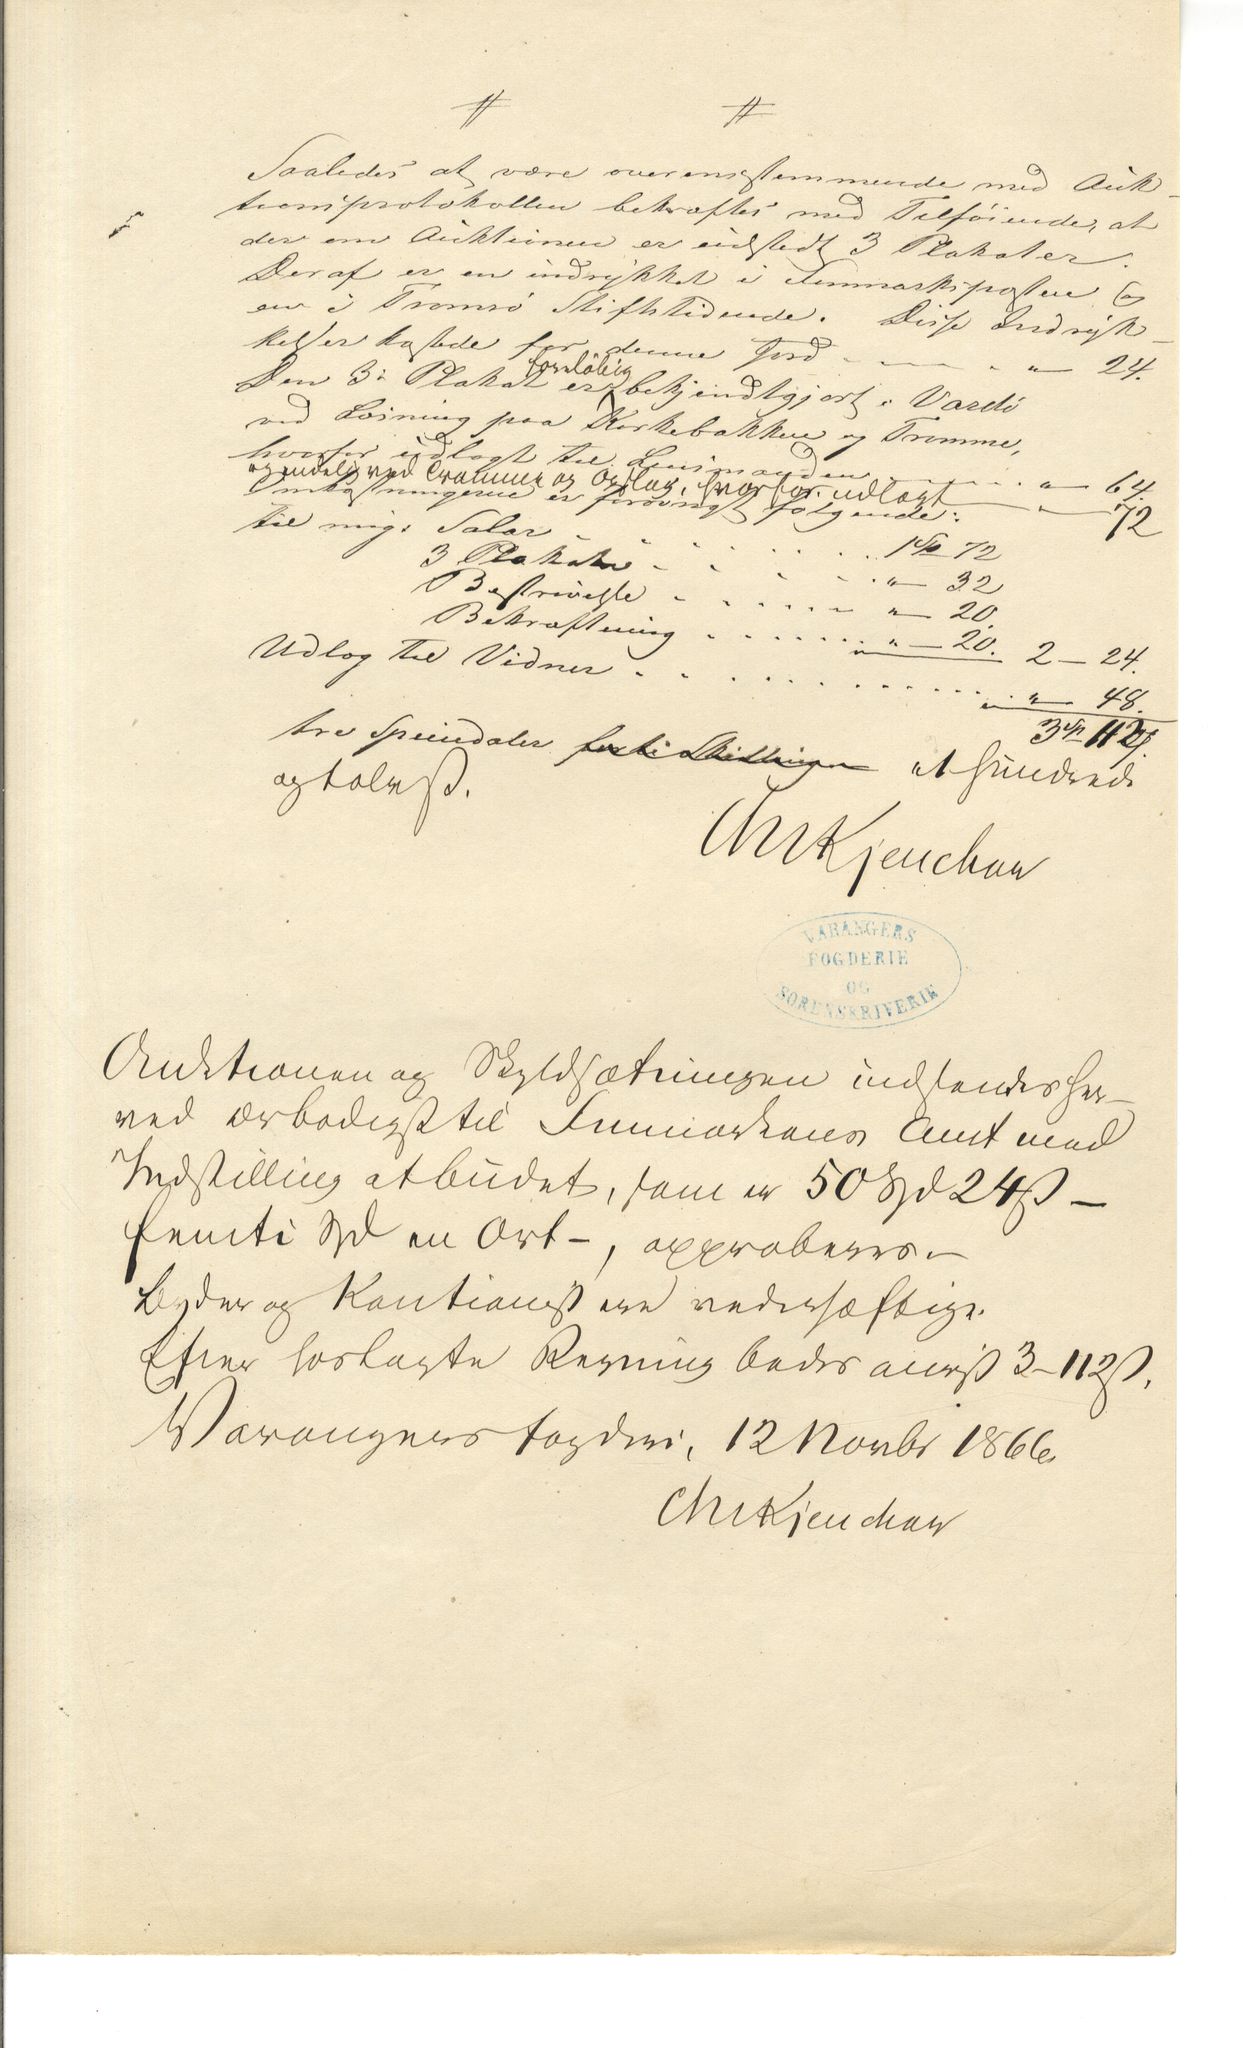 Saaledes at være overensstemmende med Auk-
tionsprotokollen bekræftes med Tilføiende, at
der om Auktionen er udstedt 3 Plakater.
Deraf er en indrykket i Finmarksposten og
en i Tromsø Stiftstidende. Disse Indryk-
kelser kostede for denne Jord " — 24.
Den 3die Plakat er foreløbig bekjendtgjort i Vardø
ved Læsning paa Kirkebakken og Tromme,
hvorfor udlagt til Lensmanden " — 64.
og endelig ved Tromme og Opslag, hvorfor udlagt " — 72
Omkostningerne er forøvrigt følgende:
til mig: Salær 1 Sp 72
3 Plakater " — 32
Beskrivelse " — 20.
Bekræftning " — 20. 2 — 24.
Udlæg til Vidner " — 48.
3 Sp 112ß
tre Speciedaler førti Skilling et hundrede
og tolv ß.
Chr Kjenchow
VARANGERS
FOGDERIE
OG
SORENSKRIVERIE
Auktionen og Skyldsætningen indsendes her-
ved ærbødigst til Finmarkens Amt med
Indstilling at budet, som er 50 Spd 24 ß —
femti Spd en Ort —, approberes. —
Byder og Kautionist ere vederhæftige.
Efter hoslagte Regning bedes anvist 3 – 112 ß.
Varangers Fogderi, 12 Novbr 1866.
Chr Kjenchow